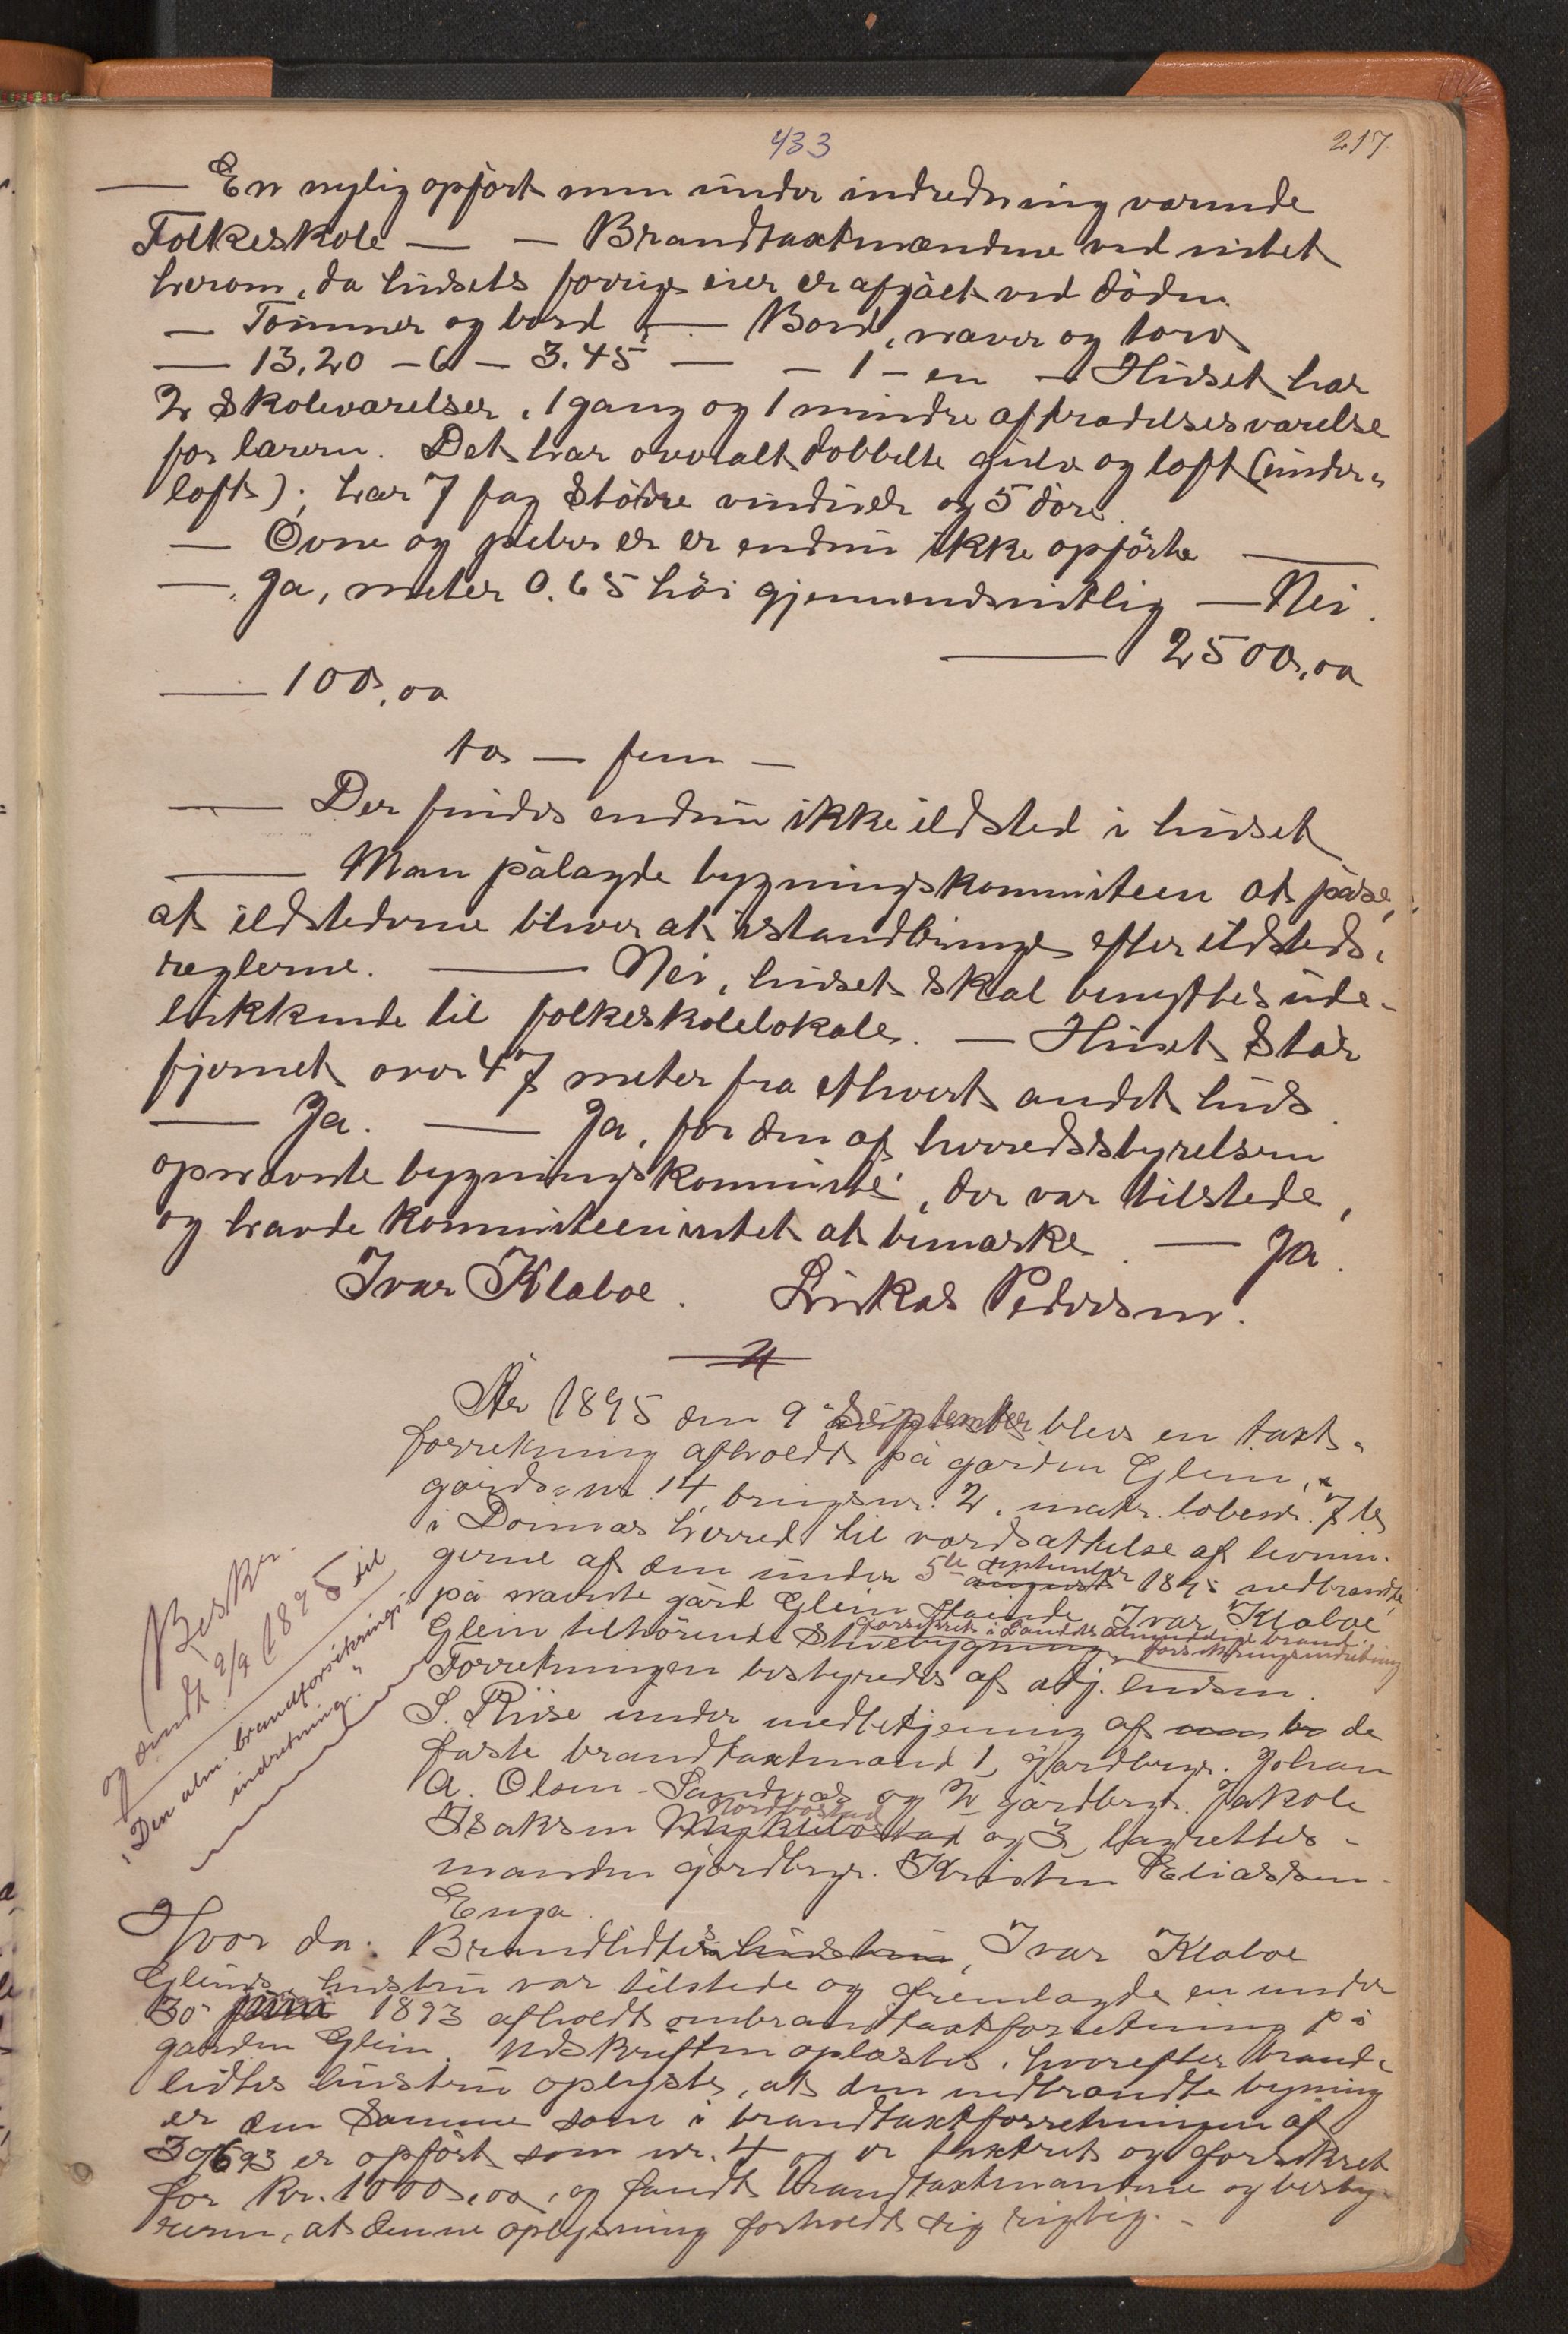 433
217.
— En nylig opført men under indredning værende
Folkeskole — — Brandtaxtmændene ved intet
herom, da husets forrige eier er afgået ved døden.
— Tømmer og bord — Bord, næver og torv
— 13,20 — 6 — 3.45 — — 1 — en — Huset har
2 skoleværelser, 1 gang og 1 mindre aftrædelsesværelse
for læreren. Det har overalt dobbelte gulve og loft (under-
loft); har 7 fag større vinduer og 5 døre.
— Ovne og piber er endnu ikke opførte —
— Ja, meter 0.65 høi gjennemsnitlig — Nei.
— 2500,00
— 100,00
to — fem —
— Der findes endnu ikke ildsted i huset
— Man pålagde bygningskommiteen at påse,
at ildstederne bliver at istandbringe efter ildsteds-
reglerne. — Nei, huset skal benyttes ude-
lukkende til folkeskolelokale. — Huset står
fjernet over 47 meter fra ethvert andet hus.
— Ja. — Ja, for den af herredsstyrelsen
opnævnte bygningskommité, der var tilstede,
og havde kommiteen intet at bemærke. — Ja.
Ivar Klaboe. Lukas Pedersen.
4
År 1895 den 9 September blev en taxt-
forretning afholdt på gården Glein,
gårds-nr. 14, brugsnr. 2, matr. løbenr. 7
i Dønnæs herred til værdsættelse af levnin-
gerne af den under 5te august september 1895 nedbrændte,
på nævnte gård Glein stående, Ivar Klaboe
Glein tilhørende Stuebygning, forsikret i Landets almindelige brand-
forsikringsindretning
Forretningen bestyredes af adj. lensm.
S. Riise under medbetjening af de
faste brandtaxtmænd 1, gårdbrgr. Johan
A. Olsen - Sandnæs og 2 gårdbrgr. Jakob
Nordbostad
Isaksen og 3, lagrettes-
manden gårdbrgr. Kristen Eliassen
Enga.
Beskr.
og sendt 9/9 1895 til
"Den alm. brandforsikrings-
indretning."
Hvor da: Brandlidtes hustru, Ivar Klaboe
Gleins hustru var tilstede og fremlagde en under
30 juni 1893 afholdt ombrandtaxtforretning på
gården Glein. Udskriften oplæstes, hvorefter brand-
lidtes hustru oplyste, at den nedbrændte bygning
er den samme som i brandtaxtforretningen af
30/6 93 er opført som nr. 4 og er taxeret og forsikret
for Kr. 1000,00, og fandt brandtaxtmændene og besty-
reren, at denne oplysning forholdt sig rigtig. -